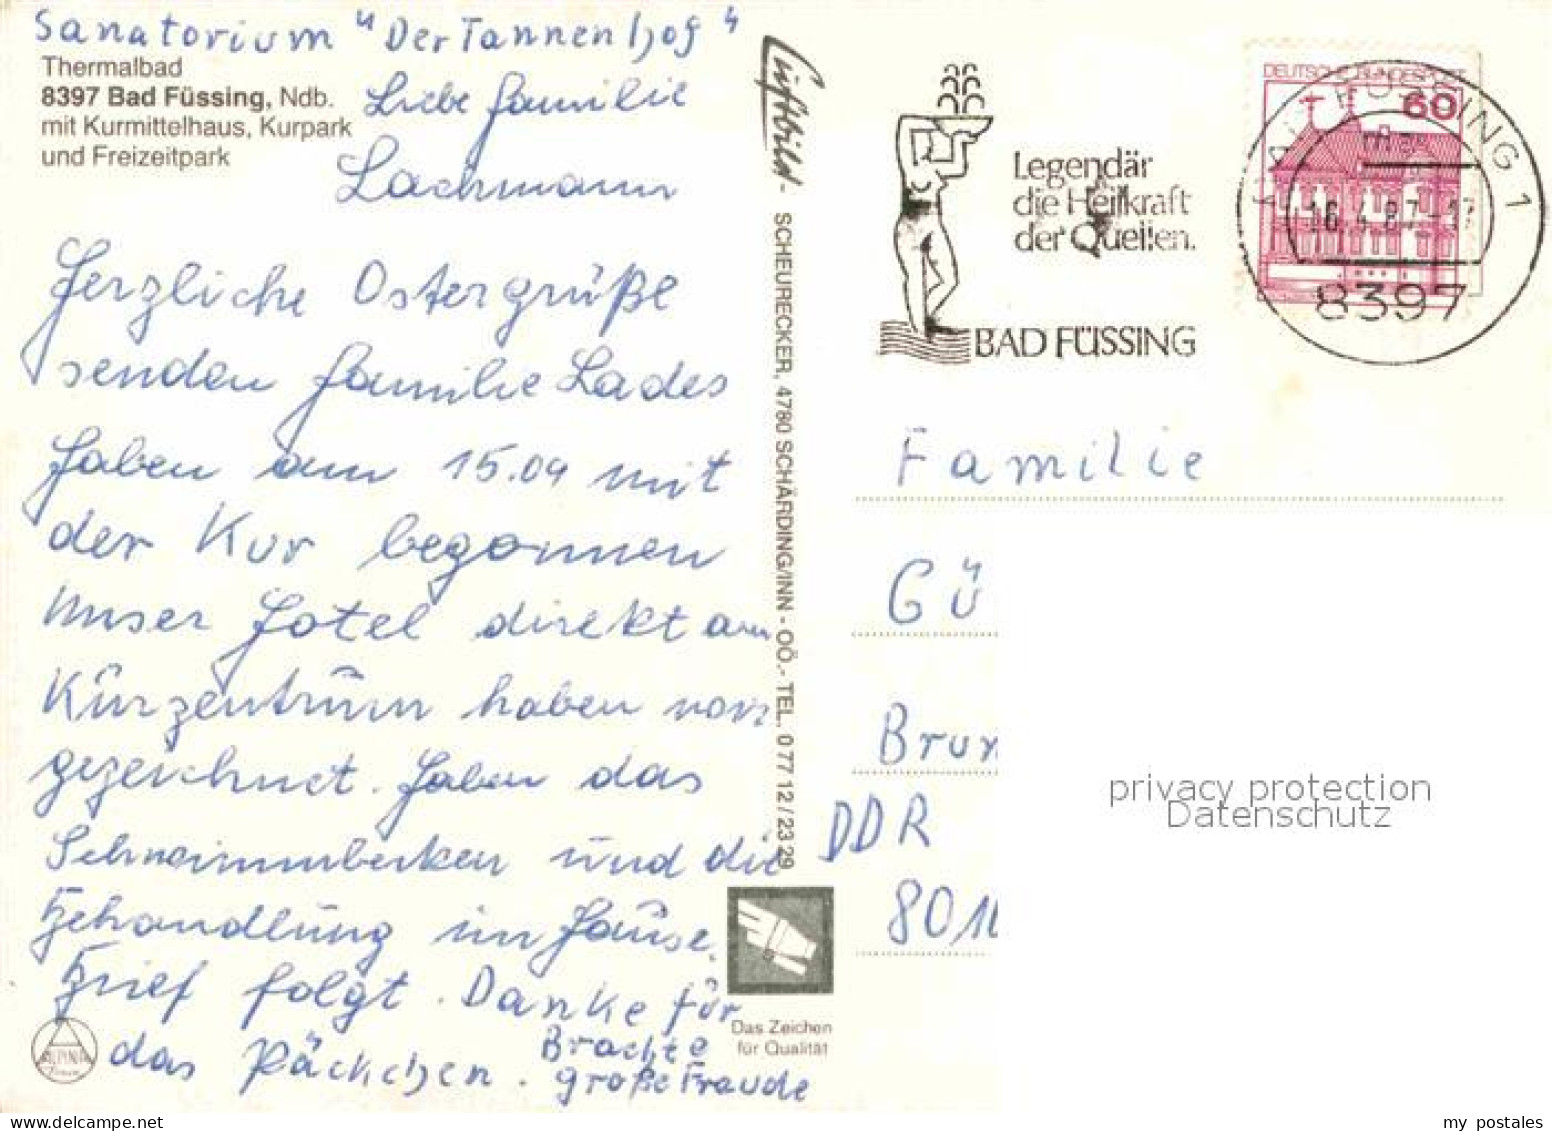 Sanatorium "Der Tannenhof"
Thermalbad
8397 Bad Füssing, Ndb.
mit Kurmittelhaus, Kurpark
und Freizeitpark
Liebe Familie
Lachmann
Herzliche Ostergrüße
senden Familie Lades
Haben am 15.04 mit
der Kur begonnen
Unser Hotel direkt am
Kurzentrum haben vorz
gezeichnet. Haben das
Schwimmbecken und die
Behandlung im Hause.
Brief folgt. Danke für
das Päckchen. Brachte
große Freude
ALPINA
Luftbild-
SCHEURECKER, 4780 SCHÄRDING/INN - OÖ.- TEL. 0 77 12 / 23 29
Das Zeichen
für Qualität
Legendär
die Heilkraft
der Quellen.
BAD FÜSSING
DEUTSCHE BUNDESPOST
60
BAD FÜSSING 1
16.4.87-17
8397
Familie
Gü
Brun
DDR
801
privacy protection
Datenschutz
my postales